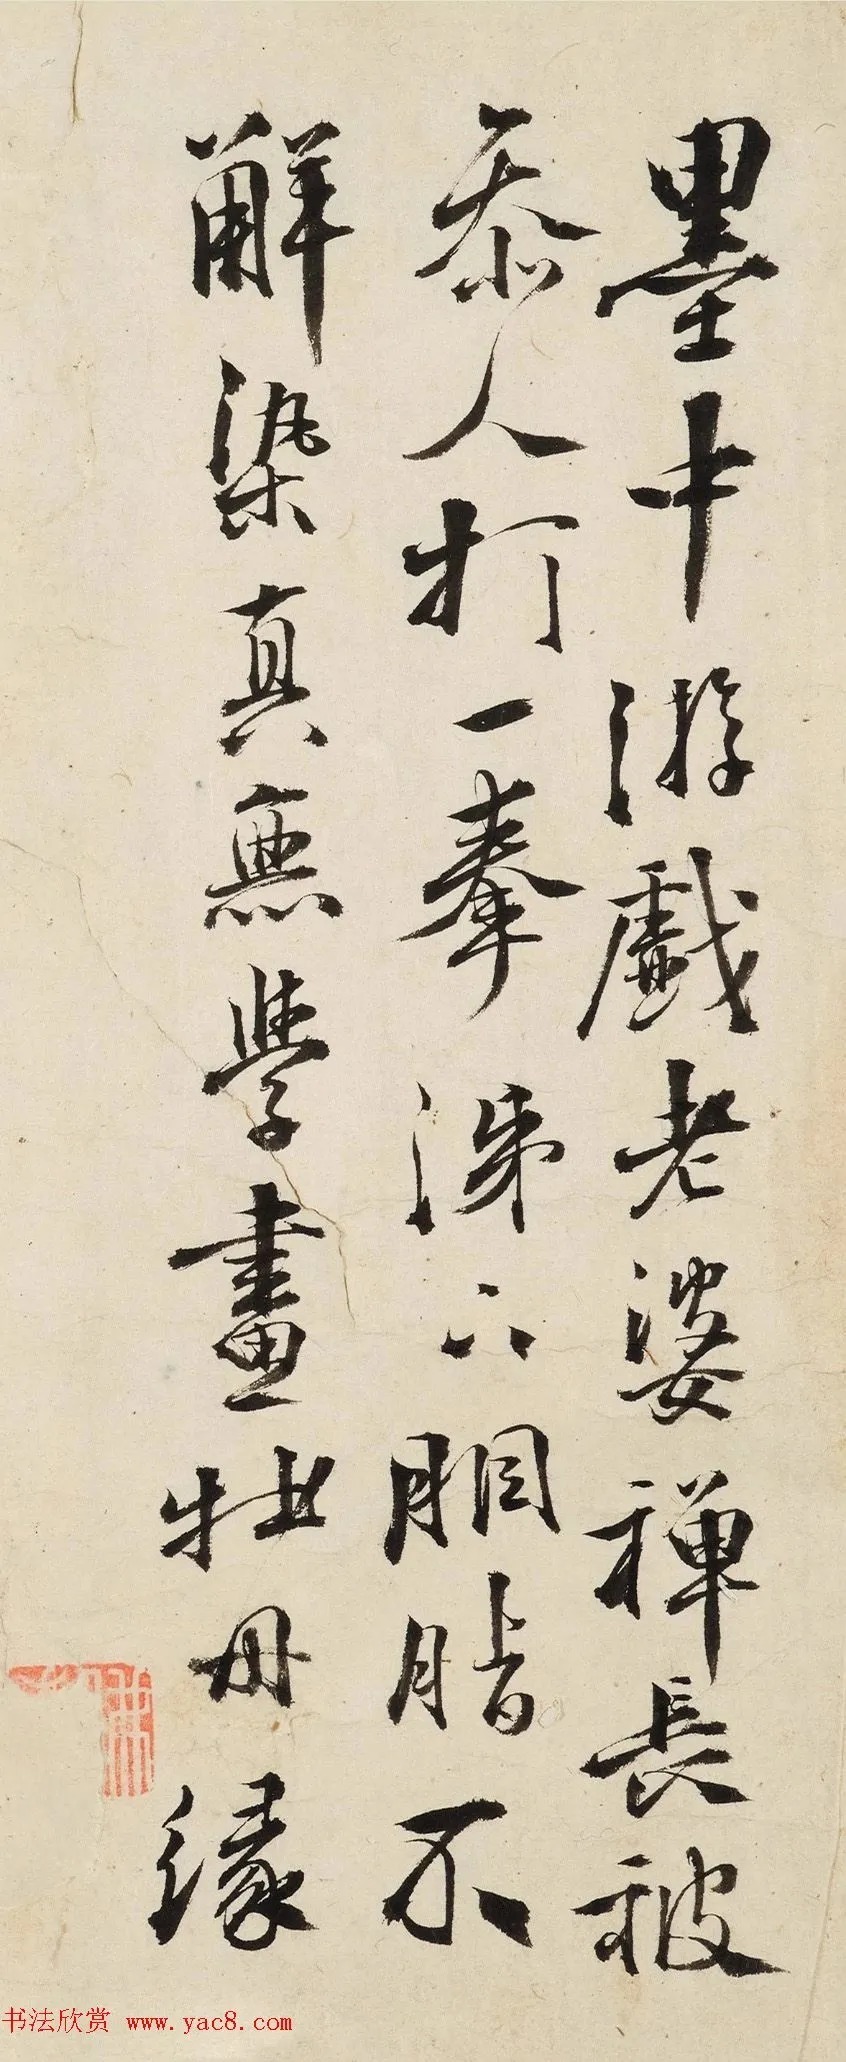 墨中游戲老婆禪長被
參人打一拳涕下胭脂不
解染真無學畫牡丹緣
书法欣赏 www.yac8.com